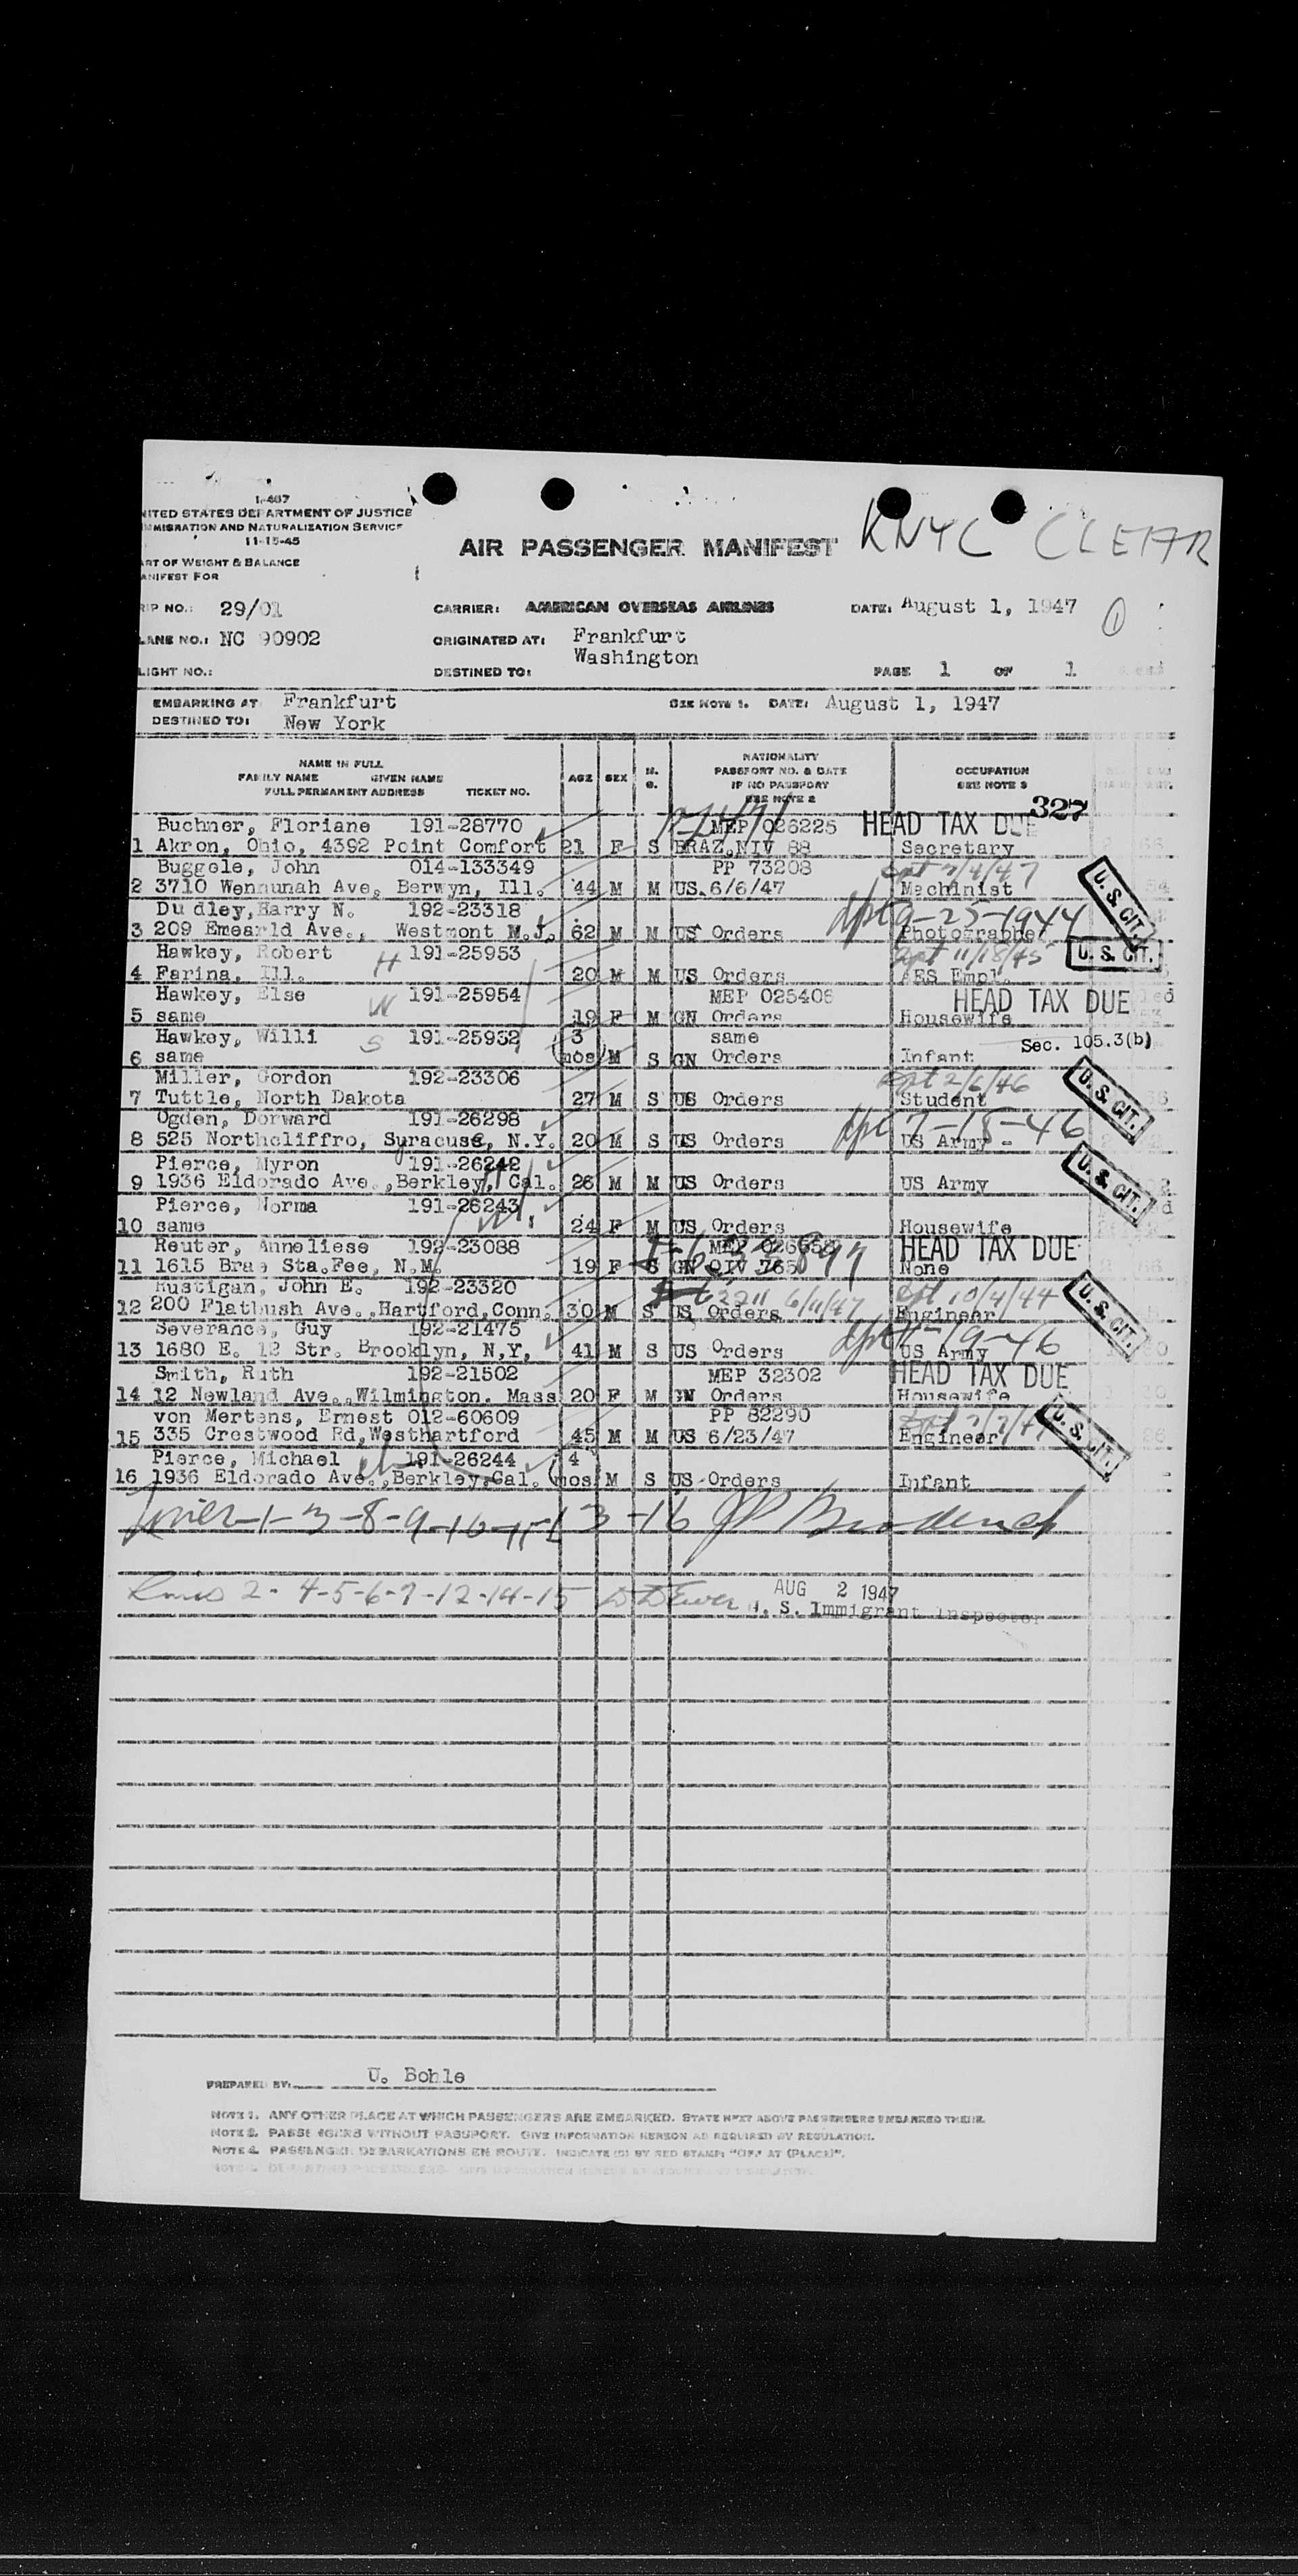 I-487
NITED STATES DEPARTMENT OF JUSTICE
MMIGRATION AND NATURALIZATION SERVICE
11-15-45
ART OF WEIGHT & BALANCE
ANIFEST FOR
AIR PASSENGER MANIFEST
KNYC CLEAR
RIP NO.: 29/01
CARRIER: AMERICAN OVERSEAS AIRLINES
DATE: August 1, 1947
1
LANE NO.: NC 90902
ORIGINATED AT: Frankfurt
LIGHT NO.:
DESTINED TO: Washington
PAGE 1 OF 1
EMBARKING AT Frankfurt
SEE NOTE 1. DATE: August 1, 1947
DESTINED TO: New York
NAME IN FULL
FAMILY NAME GIVEN NAME
FULL PERMANENT ADDRESS TICKET NO.
AGE SEX M. S.
NATIONALITY
PASSPORT NO. & DATE
IF NO PASSPORT
SEE NOTE 2
OCCUPATION
SEE NOTE 3
327
Buchner, Floriane 191-28770 MEP 026225 HEAD TAX DUE
1 Akron, Ohio, 4392 Point Comfort 21 F S BRAZ.NIV 88 Secretary
Buggele, John 014-133349 PP 73208
2 3710 Wennunah Ave, Berwyn, Ill. 44 M M US. 6/6/47 Machinist U. S. CIT.
Du dley,Harry N. 192-23318 9-25-1944
3 209 Emearld Ave., Westmont N.J. 62 M M US Orders Photographer
Hawkey, Robert H 191-25953 11/18/45 U. S. CIT.
4 Farina, Ill. 20 M M US Orders AES Empl.
Hawkey, Else W 191-25954 MEP 025406 HEAD TAX DUE
5 same 19 F M GN Orders Housewife
Hawkey, Willi S 191-25932 3 same Sec. 105.3(b)
6 same (mos) M S GN Orders Infant
Miller, Gordon 192-23306 2/6/46
7 Tuttle, North Dakota 27 M S US Orders Student U. S. CIT.
Ogden, Dorward 191-26298 7-18-46
8 525 Northcliffro, Syracuse, N.Y. 20 M S US Orders US Army
Pierce, Myron 191-26242
9 1936 Eldorado Ave.,Berkley, Cal. 26 M M US Orders US Army U. S. CIT.
Pierce, Norma 191-26243
10 same 24 F M US Orders Housewife
Reuter, Anneliese 192-23088 MEP HEAD TAX DUE
11 1615 Brae Sta.Fee, N.M. 19 F S GN QIV 765 None
Rustigan, John E. 192-23320 6/11/47 10/4/44
12 200 Flatbush Ave.,Hartford,Conn. 30 M S US Orders Engineer U. S. CIT.
Severance, Guy 192-21475
13 1680 E. 12 Str. Brooklyn, N,Y, 41 M S US Orders US Army
Smith, Ruth 192-21502 MEP 32302 HEAD TAX DUE
14 12 Newland Ave.,Wilmington. Mass 20 F M GN Orders Housewife
von Mertens, Ernest 012-60609 PP 82290
15 335 Crestwood Rd,Westhartford 45 M M US 6/23/47 Engineer U. S. CIT.
Pierce, Michael 191-26244 4
16 1936 Eldorado Ave.,Berkley,Cal. (mos M S US Orders Infant
1-3-8-9-10-11-13-16
2-4-5-6-7-12-14-15 AUG 2 1947
U. S. Immigrant Inspector
PREPARED BY: U. Bohle
NOTE 1. ANY OTHER PLACE AT WHICH PASSENGERS ARE EMBARKED. STATE NEXT ABOVE PASSENGERS EMBARKED THERE.
NOTE 2. PASSENGERS WITHOUT PASSPORT. GIVE INFORMATION HEREON AS REQUIRED BY REGULATION.
NOTE 4. PASSENGER DEBARKATIONS EN ROUTE. INDICATE BY RED STAMP: "OFF AT (PLACE)".